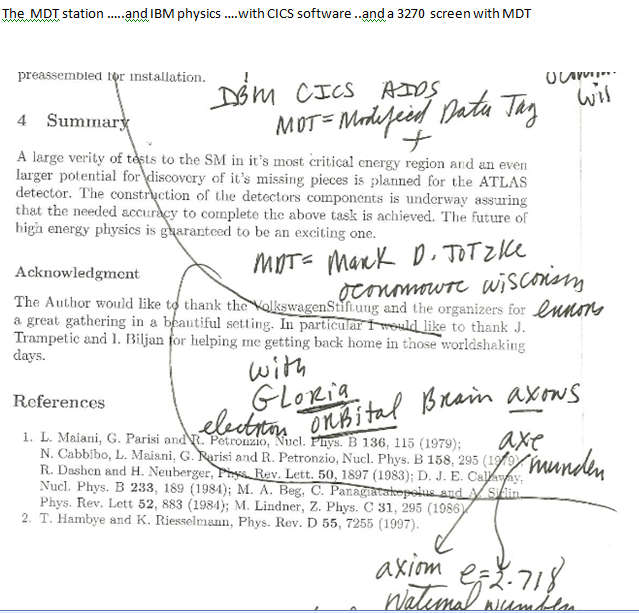 The MDT station .....and IBM physics ....with CICS software ..and a 3270 screen with MDT
preassembled for installation.
IBM CICS AIDS
Wil
MDT = Modifeid Data Tag
+
4 Summary
A large verity of tests to the SM in it's most critical energy region and an even
larger potential for discovery of it's missing pieces is planned for the ATLAS
detector. The construction of the detectors components is underway assuring
that the needed accuracy to complete the above task is achieved. The future of
high energy physics is guaranteed to be an exciting one.
MDT = Mark D. ToTzke
oconomowoc wisconsin
Acknowledgment
errors
The Author would like to thank the VolkswagenStiftung and the organizers for
a great gathering in a beautiful setting. In particular I would like to thank J.
Trampetic and I. Biljan for helping me getting back home in those worldshaking
days.
with
GLORIA Brain axons
electron orbital
axe
munden
References
1. L. Maiani, G. Parisi and R. Petronzio, Nucl. Phys. B 136, 115 (1979);
N. Cabbibo, L. Maiani, G. Parisi and R. Petronzio, Nucl. Phys. B 158, 295 (1979)
R. Dashen and H. Neuberger, Phys. Rev. Lett. 50, 1897 (1983); D. J. E. Callaway,
Nucl. Phys. B 233, 189 (1984); M. A. Beg, C. Panagiatakopolus and A. Sirlin,
Phys. Rev. Lett 52, 883 (1984); M. Lindner, Z. Phys. C 31, 295 (1986)
2. T. Hambye and K. Riesselmann, Phys. Rev. D 55, 7255 (1997).
axiom e=2.718
Natural number